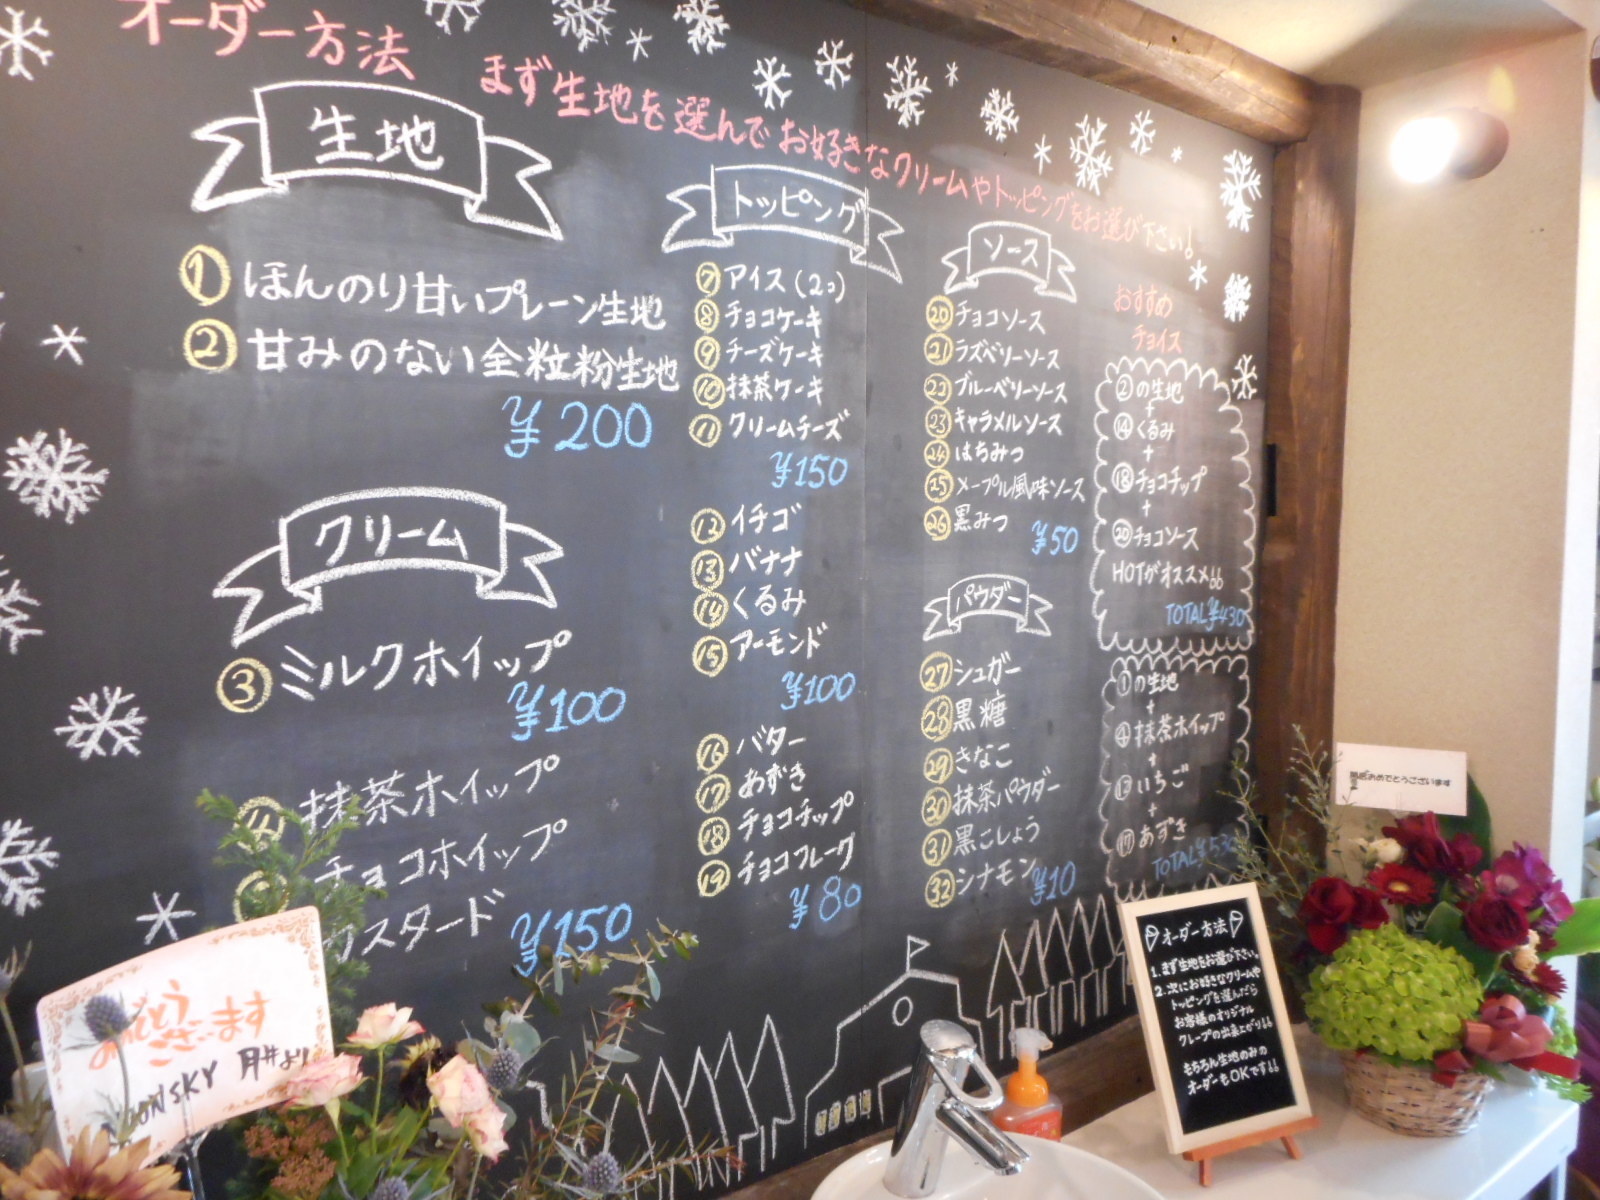 オーダー方法
まず生地を選んでお好きなクリームやトッピングをお選び下さい!
生地
① ほんのり甘いプレーン生地
② 甘みのない全粒粉生地
¥200
クリーム
③ ミルクホイップ
¥100
抹茶ホイップ
チョコホイップ
カスタード
¥150
トッピング
⑦ アイス(2コ)
⑧ チョコケーキ
⑨ チーズケーキ
⑩ 抹茶ケーキ
⑪ クリームチーズ
¥150
⑫ イチゴ
⑬ バナナ
⑭ くるみ
⑮ アーモンド
¥100
⑯ バター
⑰ あずき
⑱ チョコチップ
⑲ チョコフレーク
¥80
ソース
⑳ チョコソース
㉑ ラズベリーソース
㉒ ブルーベリーソース
㉓ キャラメルソース
㉔ はちみつ
㉕ メープル風味ソース
㉖ 黒みつ
¥50
パウダー
㉗ シュガー
㉘ 黒糖
㉙ きなこ
㉚ 抹茶パウダー
㉛ 黒こしょう
㉜ シナモン
¥10
おすすめ
チョイス
②の生地
+
⑭くるみ
+
⑱チョコチップ
+
⑳チョコソース
HOTがオススメ!!
TOTAL ¥430
①の生地
+
④抹茶ホイップ
+
⑫いちご
+
⑰あずき
TOTAL ¥530
オーダー方法
1. まず生地をお選び下さい。
2. 次にお好きなクリームや
トッピングを選んだら
お客様のオリジナル
クレープの出来上がり!!
もちろん生地のみの
オーダーもOKです!!
開店おめでとうございます
おめでとう
ございます
SKY